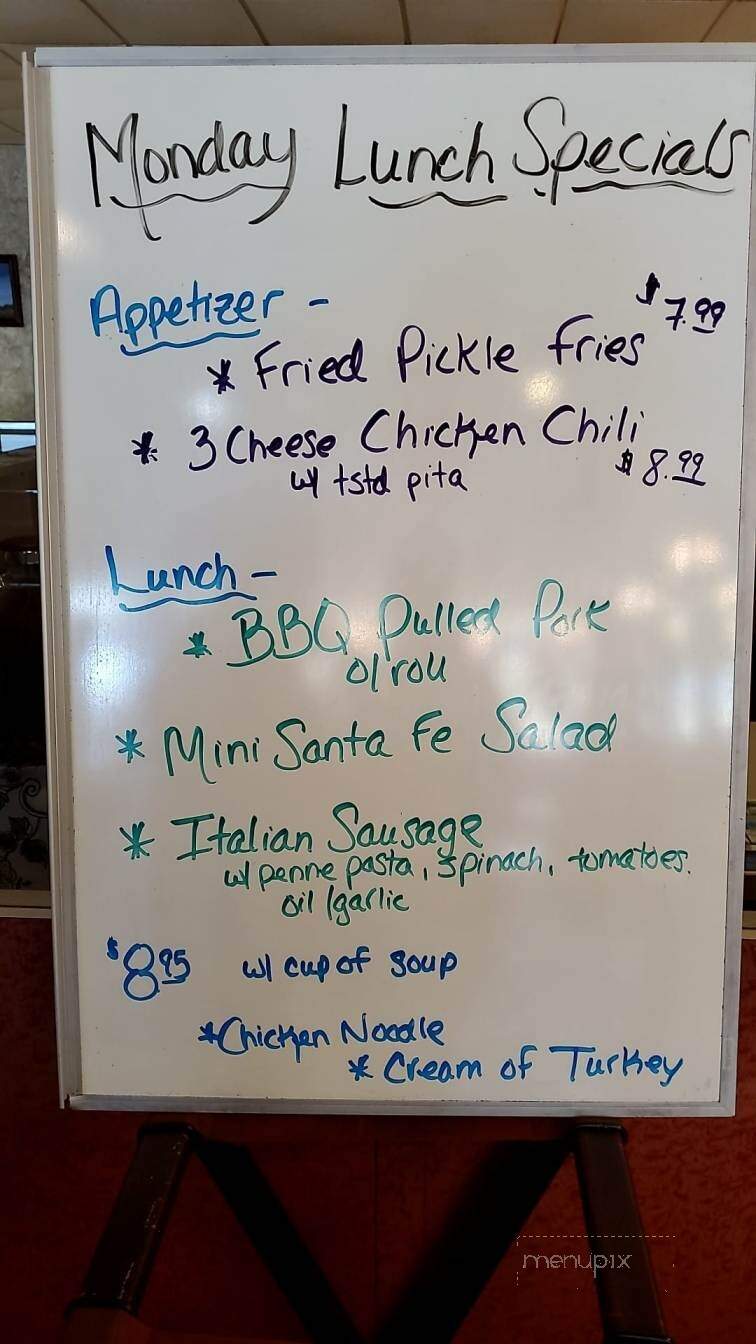 Monday Lunch Specials
Appetizer -
$7.99
* Fried Pickle Fries
* 3 Cheese Chicken Chili
w/ tstd pita $8.99
Lunch -
* BBQ Pulled Pork
o/roll
* Mini Santa Fe Salad
* Italian Sausage
w/ penne pasta, spinach, tomatoes.
oil /garlic
$8.95 w/ cup of soup
*Chicken Noodle
* Cream of Turkey
menupix